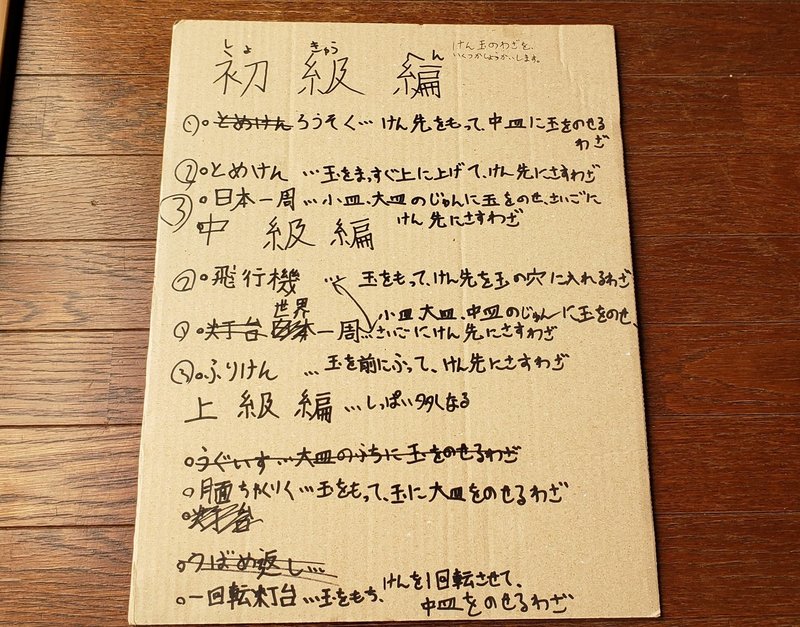 しょ きゅう へん
初級編
けん玉のわざを、
いくつかしょうかいします。
①。とめけん ろうそく… けん先をもって、中皿に玉をのせる
わざ
②。とめけん …玉をまっすぐ上に上げて、けん先にさすわざ
③。日本一周…小皿、大皿のじゅんに玉をのせ、さいごに
けん先にさすわざ
中級編
②。飛行機 … 玉をもって、けん先を玉の穴に入れるわざ
世界 小皿大皿、中皿のじゅんに玉をのせ、
。灯台 日本一周…さいごにけん先にさすわざ
③。ふりけん …玉を前にふって、けん先にさすわざ
上級編…しっぱい多くなる
。うぐいす…大皿のうちに玉をのせるわざ
。月面ちゃくりく…玉をもって、玉に大皿をのせるわざ
。灯台
。つばめ返し…
。一回転灯台…玉をもち、けんを1回転させて、
中皿をのせるわざ